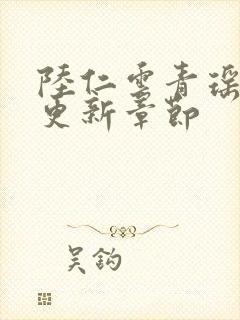 陸仁雲青瑤
更新章節
吴鈎